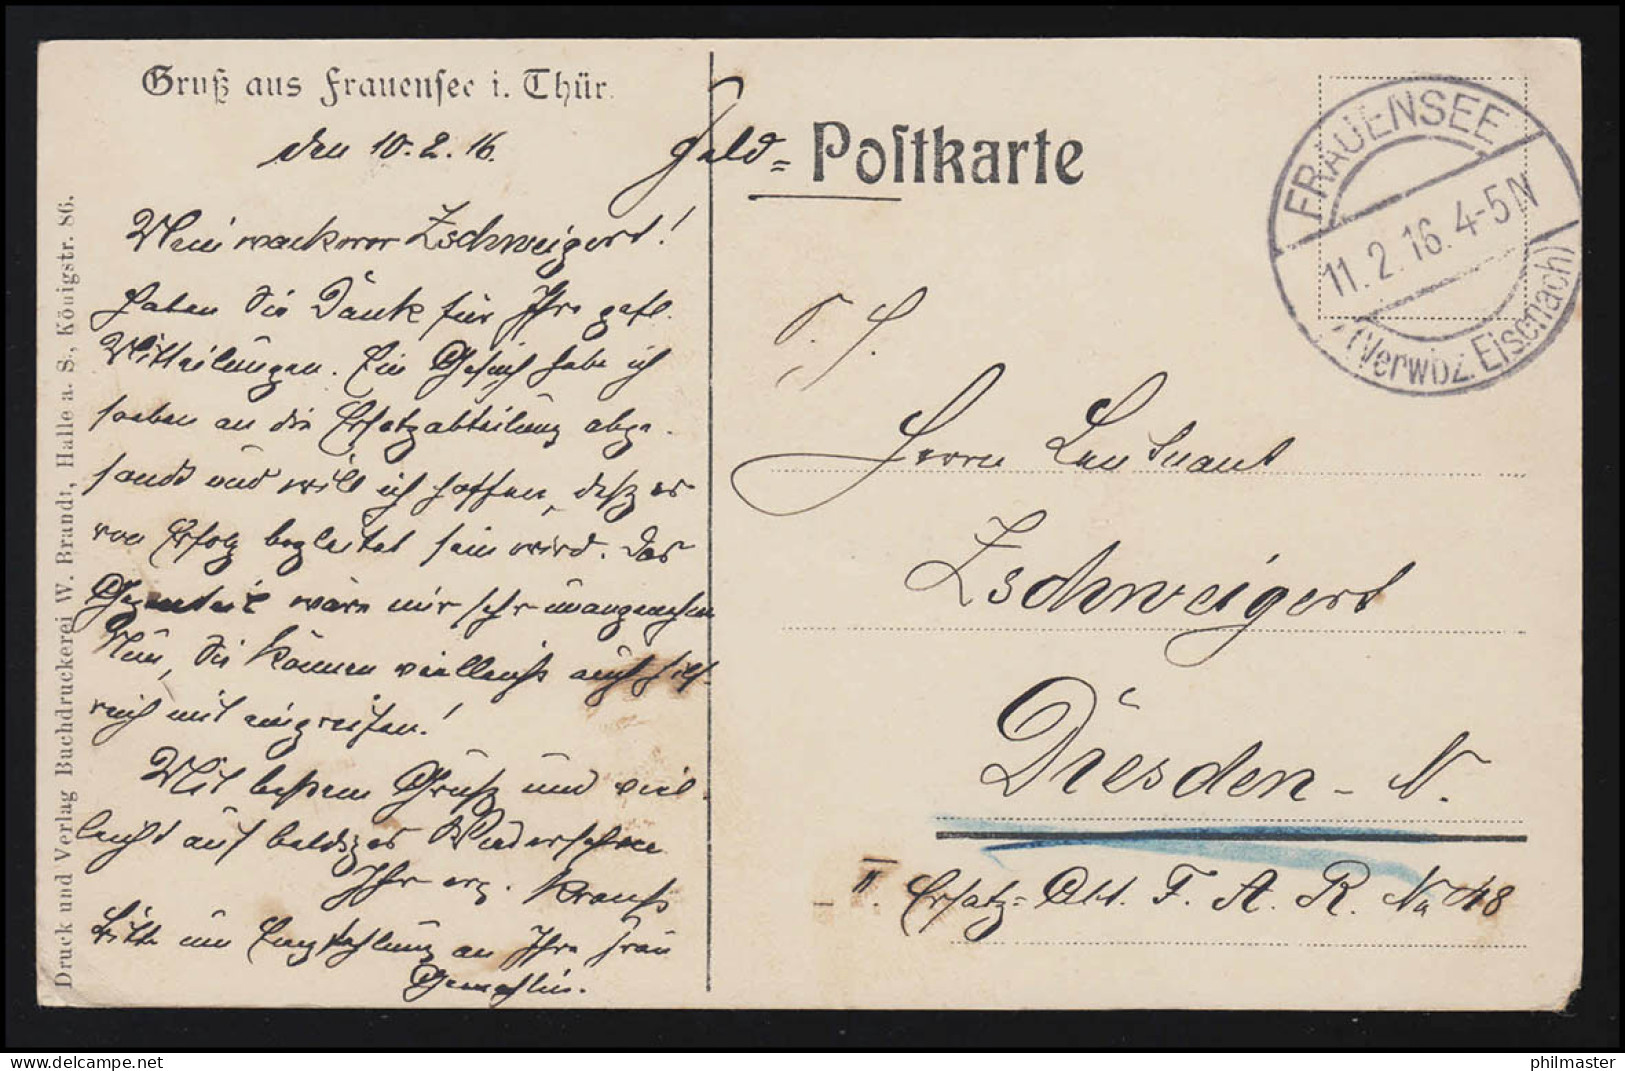 Gruß aus Frauensee i. Thür.
den 10.2.16.
Mein wackerer Zschweigert!
Haben Sie Dank für Ihre gefl.
Mitteilungen. Ein Gesuch habe ich
soeben an die Ersatzabteilung abge-
sandt und will ich hoffen, daß es
von Erfolg begleitet sein wird. Das
Gegenteil wäre mir sehr unangenehm
Nun, Sie können vielleicht auch hilf-
reich mit eingreifen!
Mit bestem Gruß und viel-
leicht auf baldiges Wiedersehen
Ihr erg. Krauß
Bitte um Empfehlung an Ihre Frau
Gemahlin.
Druck und Verlag Buchdruckerei W. Brandt, Halle a. S., Königstr. 86.
Feld= Postkarte
FRAUENSEE
11.2.16. 4-5 N
(Verwbz. Eisenach)
S. H.
Herrn Leutnant
Zschweigert
Dresden - N.
II. Ersatz= Abt. F. A. R. No 48
philmaster